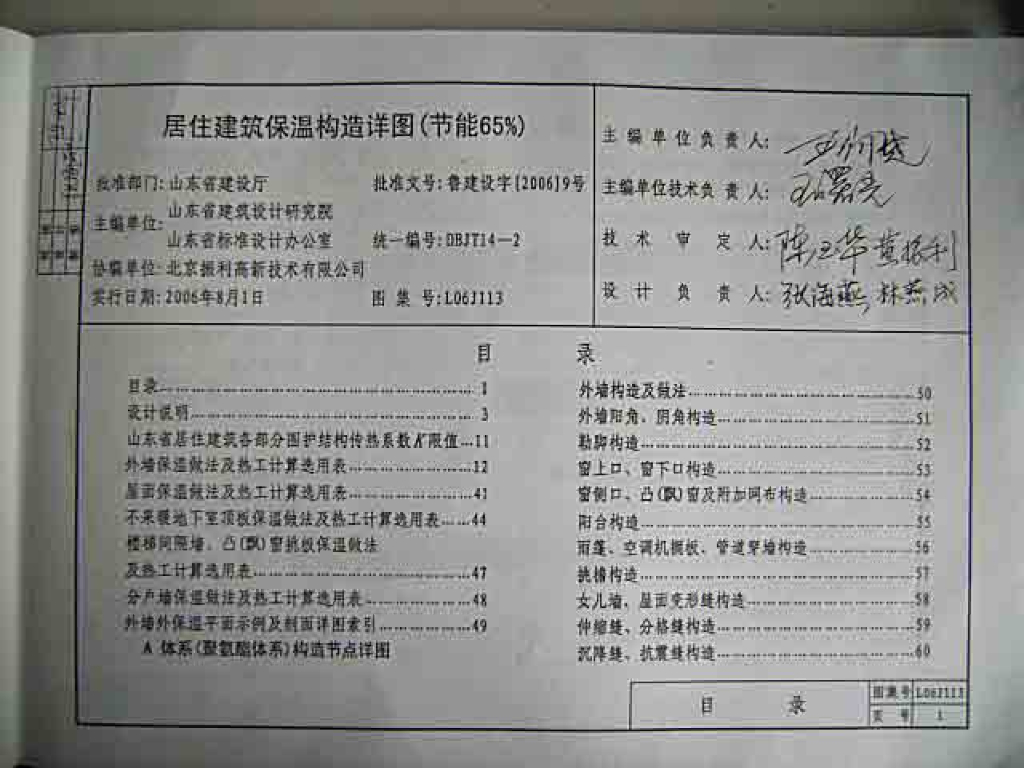 居住建筑保温构造详图(节能65%)
批准部门:山东省建设厅 批准文号:鲁建设字[2006]9号
主编单位:山东省建筑设计研究院
山东省标准设计办公室 统一编号:DBJT14-2
协编单位:北京振利高新技术有限公司
实行日期:2006年8月1日 图集号:L06J113
主编单位负责人:
主编单位技术负责人:
技术审定人:
设计负责人:张海燕
目录
目录 1
设计说明 3
山东省居住建筑各部分围护结构传热系数K限值 11
外墙保温做法及热工计算选用表 12
屋面保温做法及热工计算选用表 41
不采暖地下室顶板保温做法及热工计算选用表 44
楼梯间隔墙、凸(飘)窗挑板保温做法
及热工计算选用表 47
分户墙保温做法及热工计算选用表 48
外墙外保温平面示例及剖面详图索引 49
A 体系(聚氨酯体系)构造节点详图
外墙构造及做法 50
外墙阳角、阴角构造 51
勒脚构造 52
窗上口、窗下口构造 53
窗侧口、凸(飘)窗及附加网布构造 54
阳台构造 55
雨蓬、空调机搁板、管道穿墙构造 56
挑檐构造 57
女儿墙、屋面变形缝构造 58
伸缩缝、分格缝构造 59
沉降缝、抗震缝构造 60
目录
图集号 L06J113
页号 1